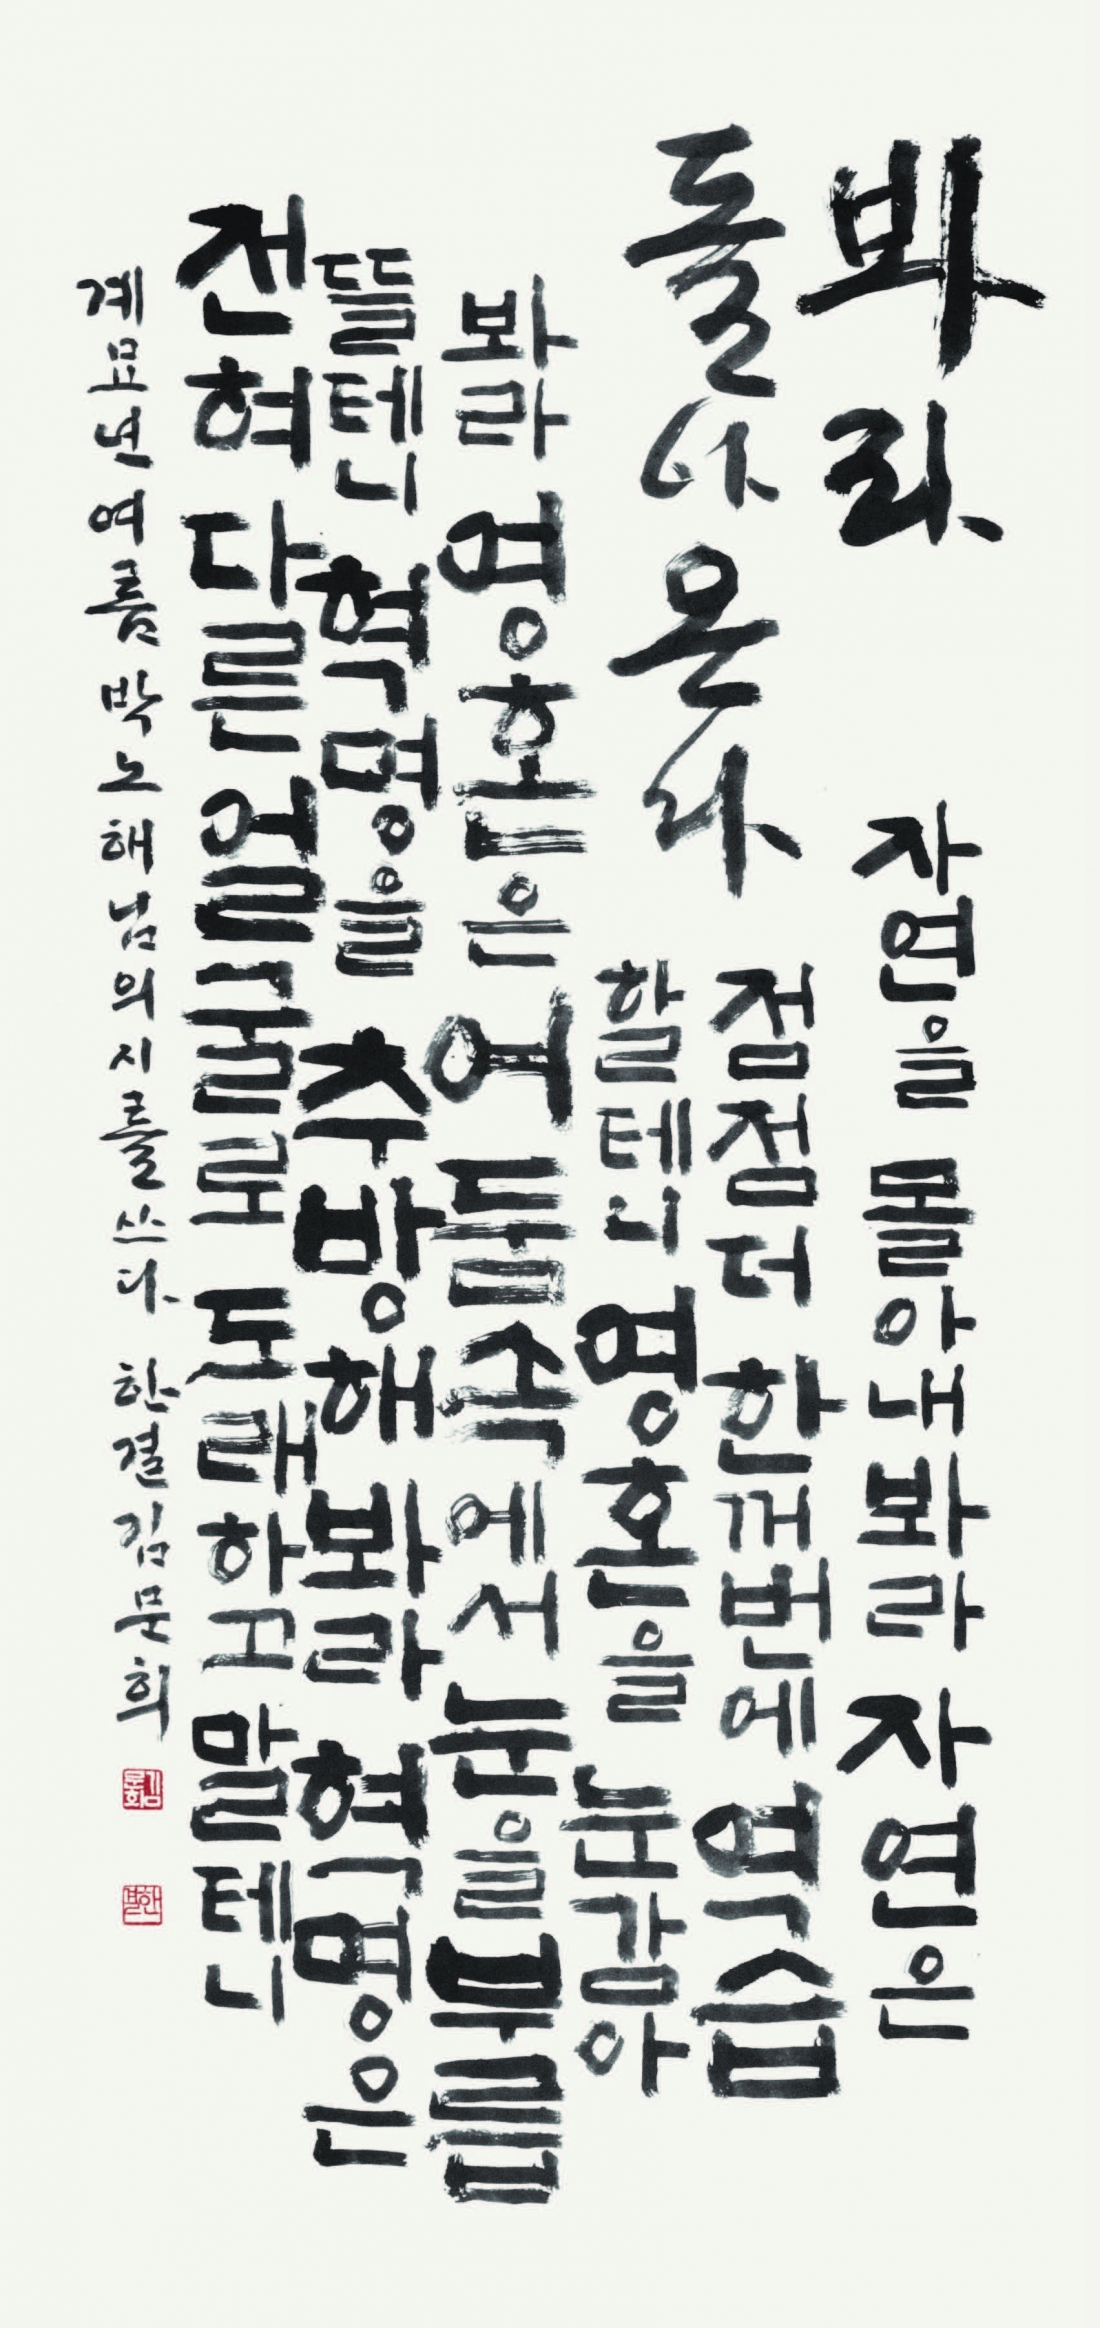 봐라
돌아온다
자연을 몰아내 봐라 자연은
점점 더 한꺼번에 역습
할테니 영혼을 눈감아
봐라 영혼은 어둠 속에서 눈을 부릅
뜰테니 혁명을 추방해 봐라 혁명은
전혀 다른 얼굴로 도래하고 말테니
계묘년 여름 박노해님의 시를 쓰다 한결 김문희
김문희
한결